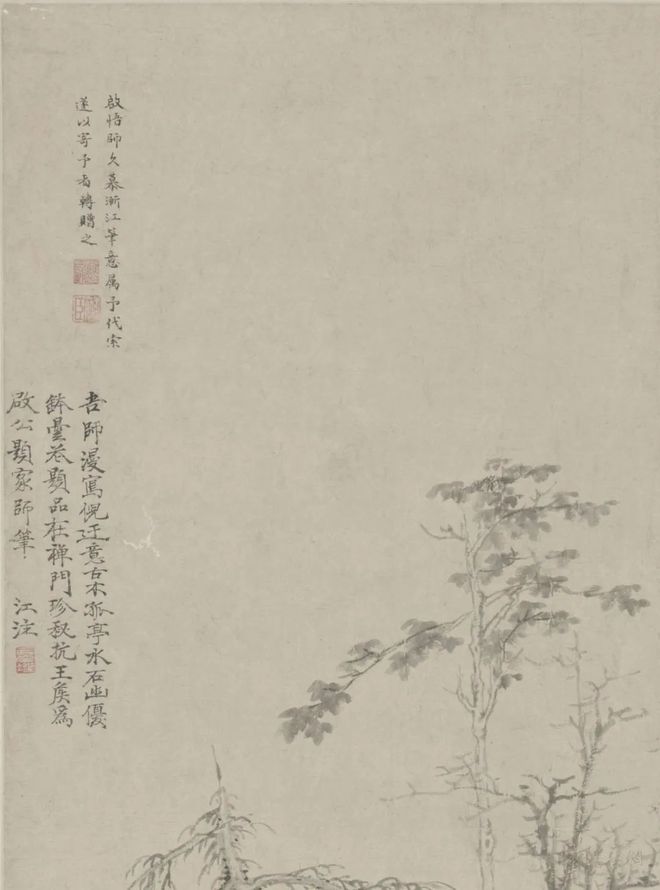 啟悟師久慕漸江筆意属予代索
遂以寄予者轉贈之
吾師漫寫倪迂意古木孤亭水石幽優
鉢曇花顯品在禅門珍秘抗王侯為
啟公題家師筆 江注